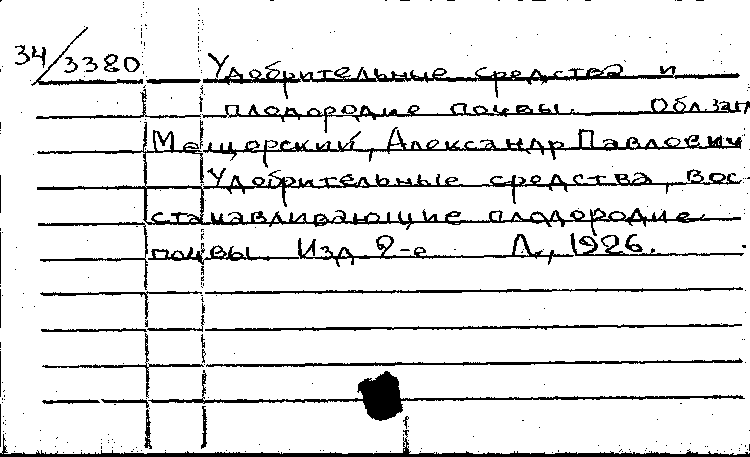 34/3380 Удобрительные средства и
плодородие почвы. Обл. заг
Мещерский, Александр Павлович
Удобрительные средства, вос-
станавливающие плодородие
почвы. Изд. 2-е Л., 1926.